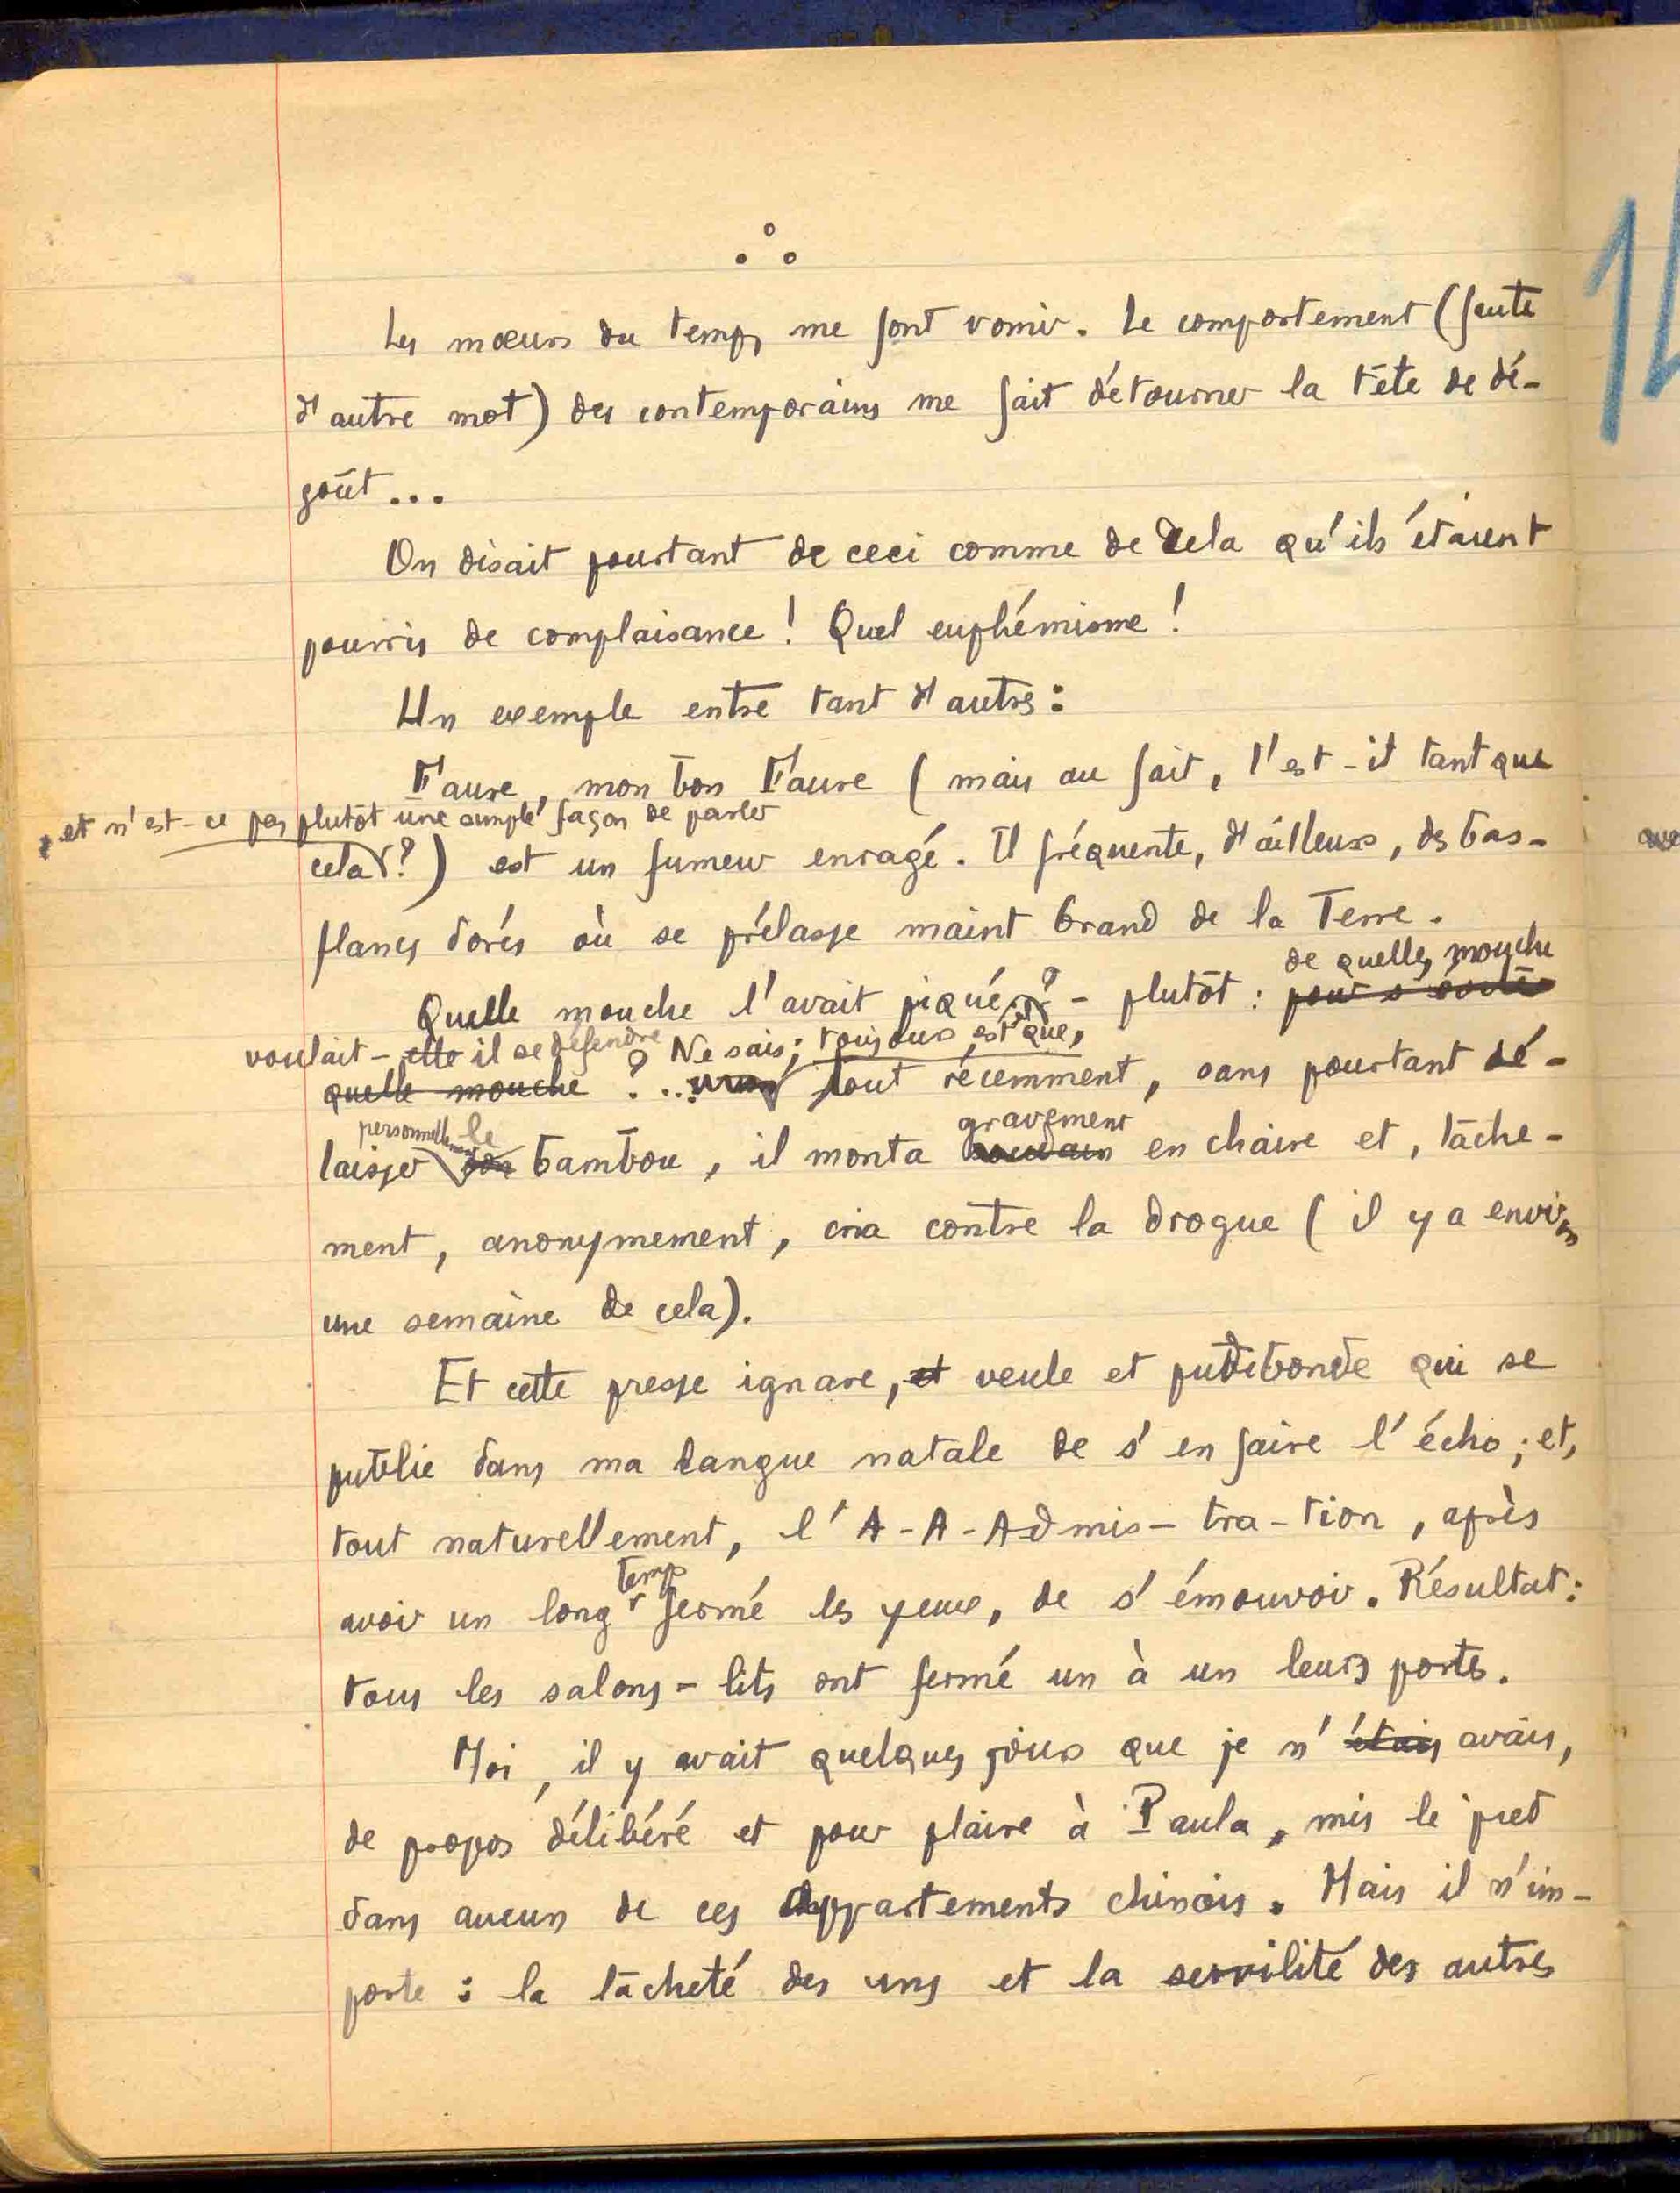 Les mœurs du temps me font vomir. Le comportement (faute
d'autre mot) des contemporains me fait détourner la tête de dé-
goût...
On disait pourtant de ceci comme de cela qu'ils étaient
pourris de complaisance ! Quel euphémisme !
Un exemple entre tant d'autres :
Faure, mon bon Faure (mais au fait, l'est-il tant que
, et n'est-ce pas plutôt une simple façon de parler
cela ?) est un fumeur enragé. Il fréquente, d'ailleurs, des bas-
flancs dorés où se prélasse maint Grand de la Terre.
de quelles mouche
Quelle mouche l'avait piqué ? - plutôt : pour s'
voulait-elle il se défendre ? Ne sais ; toujours est que,
quelle mouche ? .. tout récemment, sans pourtant dé-
personnellement le gravement
laisser son bambou, il monta soudain en chaire et, lâche-
ment, anonymement, cria contre la drogue (il y a environ
une semaine de cela).
Et cette presse ignare, et veule et pudibonde qui se
publie dans ma langue natale de s'en faire l'écho ; et,
tout naturellement, l'A-A-Admis-tra-tion, après
temps
avoir un long fermé les yeux, de s'émouvoir. Résultat :
tous les salons-lits ont fermé un à un leurs portes.
Moi, il y avait quelques jours que je n'étais avais,
de propos délibéré et pour plaire à Paula, mis le pied
dans aucun de ces appartements chinois. Mais il n'im-
porte : la lâcheté des uns et la servilité des autres